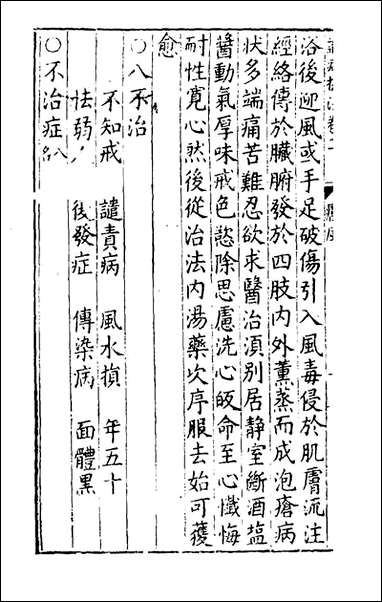 浴後迎風或手足破傷引入風毒侵於肌膚流注
經絡傳於臟腑發於四肢内外薰蒸而成泡瘡病
状多端痛苦難忍欲求醫治湏别居静室斷酒塩
醬動氣厚味戒色慾除思慮洗心皈命至心懺悔
耐性寛心然後從治法内湯藥次序服去始可獲
愈
○八不治
不知戒 譴責病 風水損 年五十
怯弱人 後發症 傳染病 面體黑
○不治症